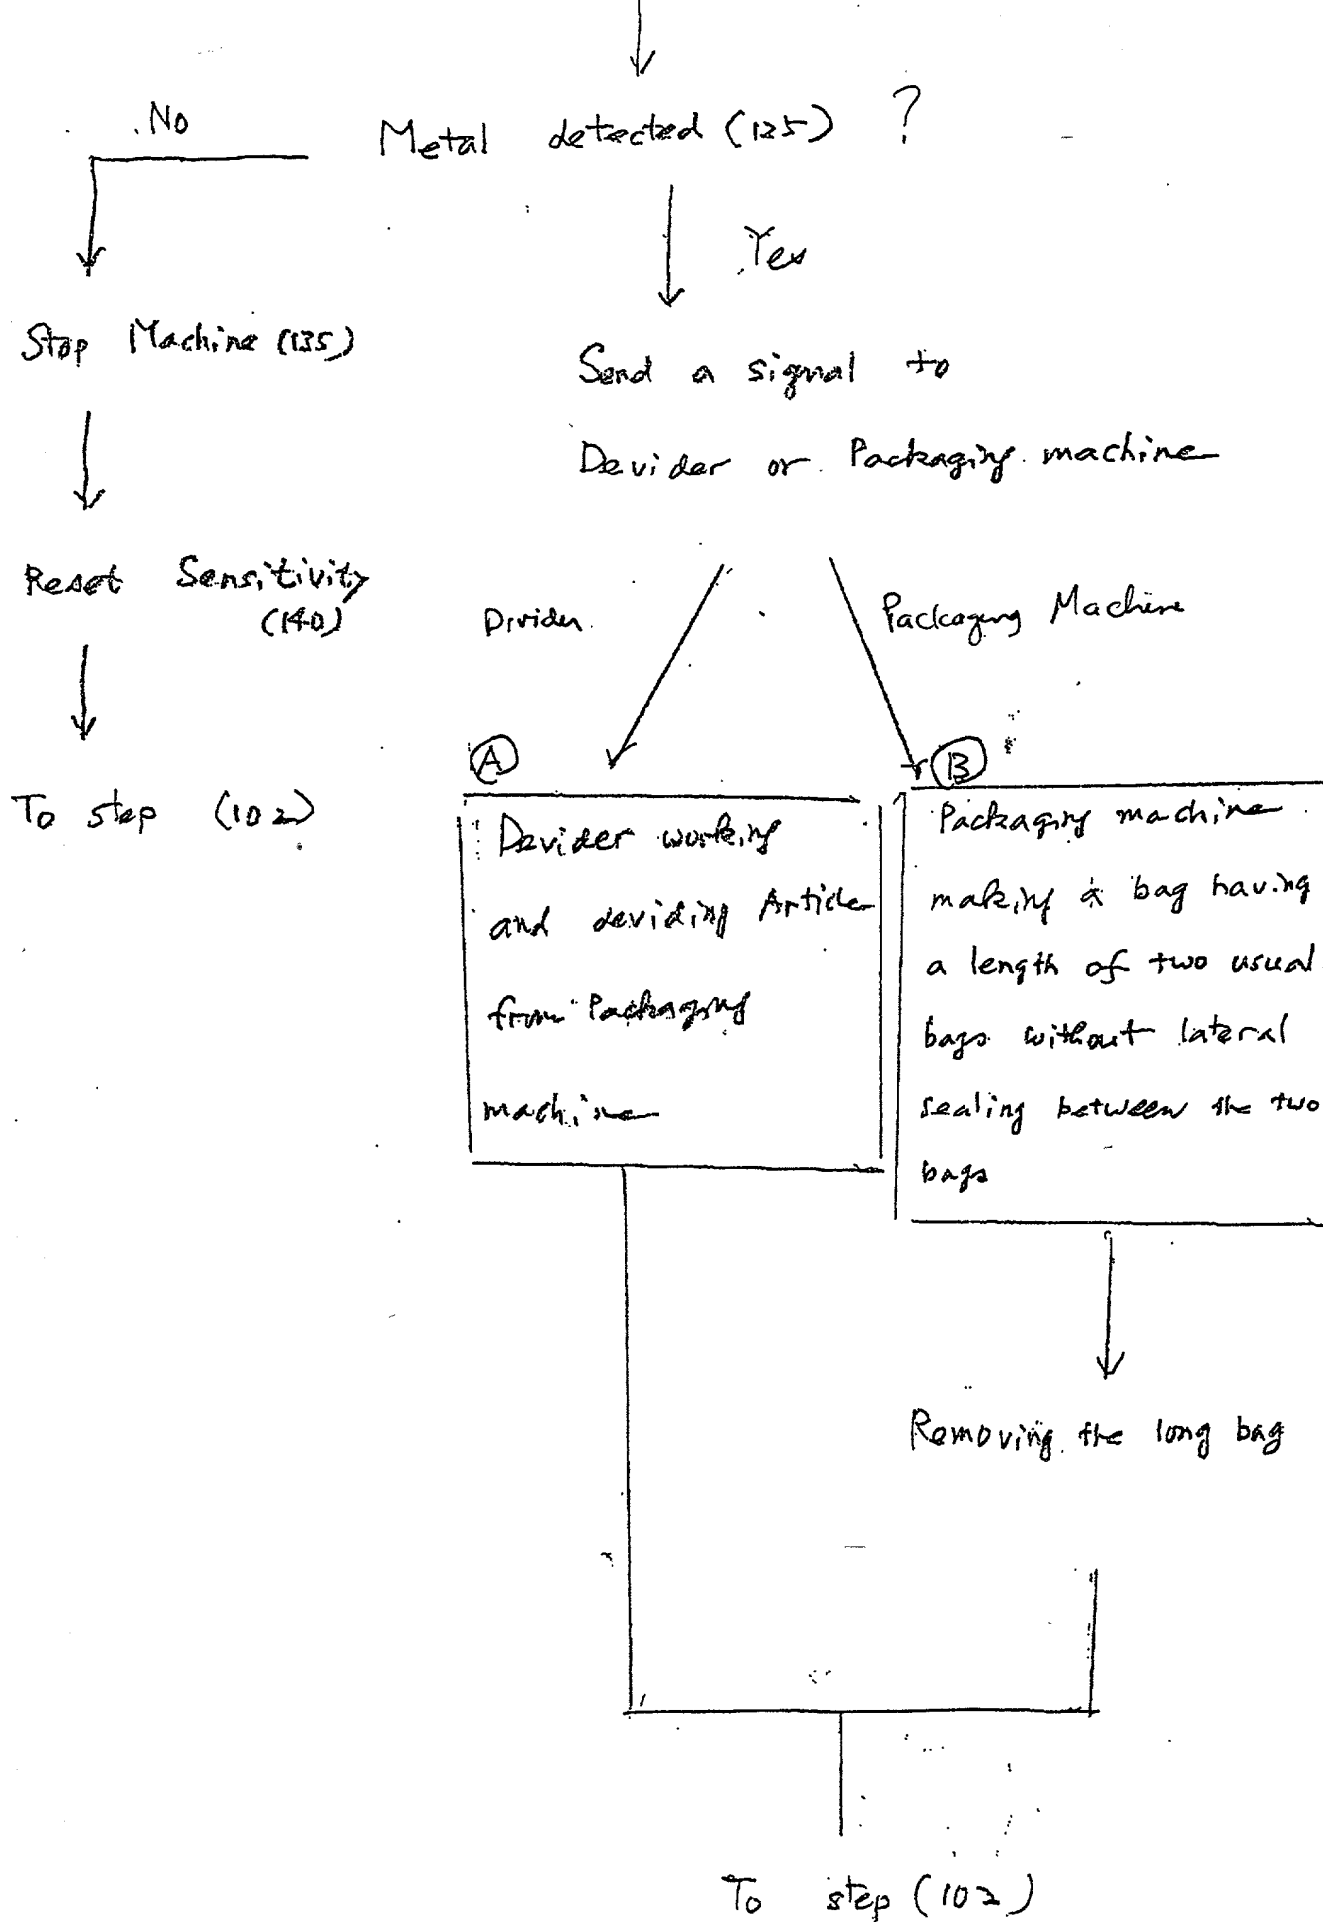 No
Metal detected (125) ?
Yes
Stop Machine (135)
Send a signal to
Devider or Packaging machine
Reset Sensitivity
(140)
Divider
Packaging Machine
A
B
To step (102)
Devider working
and deviding Article
from Packaging
machine
Packaging machine
making a bag having
a length of two usual
bags without lateral
sealing between the two
bags
Removing the long bag
To step (102)